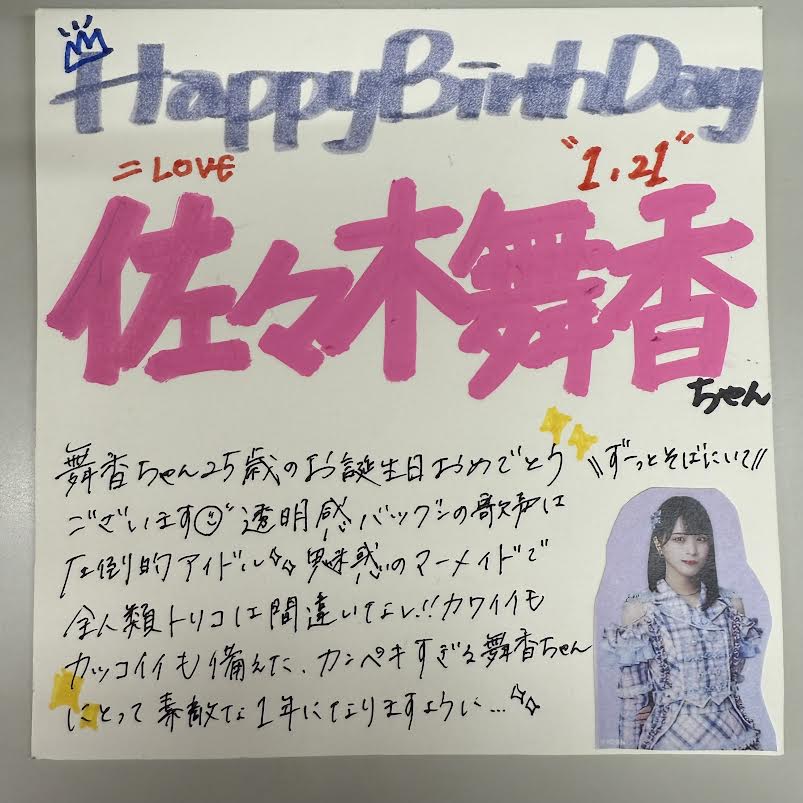 Happy BirthDay
=LOVE
"1.21"
佐々木舞香
ちゃん
\\ずーっとそばにいて//
舞香ちゃん25歳のお誕生日おめでとう
ございます 透明感バツグンの歌声は
圧倒的アイドル 魅惑のマーメイドで
全人類トリコは間違いなし!!カワイイも
カッコイイも備えた、カンペキすぎる舞香ちゃん
にとって素敵な1年になりますように…